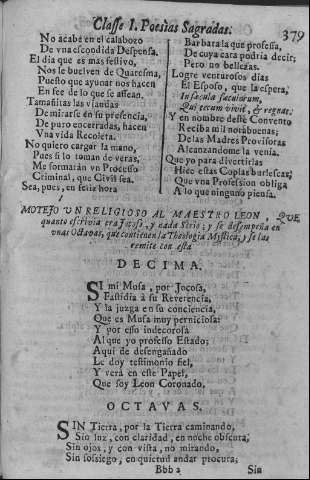 Classe I. Poesias Sagradas. 379
No acabe en el calabozo
De vna escondida Despensa.
El dia que es mas festivo,
Nos le buelven de Quaresma,
Puesto que ayunar nos hacen
En fee de lo que se assean.
Tamañitas las viandas
De mirarse én su presencia,
De puro encerradas, hacen
Vna vida Recoleta.
No quiero cargar la mano,
Pues si lo toman de veras,
Me formarán vn Processo
Criminal, que Civil sea.
Sea, pues, en feliz hora
Barbara la que professa,
De cuya cara podria decir;
Pero no bellezas.
Logre venturosos dias
El Esposo, que la espera,
In sæcula sæculorum,
Qui tecum vivit, & regnat;
Y en nombre deste Convento
Reciba mil norabuenas;
De las Madres Provisoras
Alcanzandome la venia.
Que yo para divertirlas
Hice estas Coplas burlescas;
Que vna Profession obliga
A lo que ninguno piensa.
MOTEJO UN RELIGIOSO AL MAESTRO LEON, QUE
quanto escrivia era Jocoso, y nada Serio; y se desempeña en
vnas Octavas, que contienen la Theologia Mystica, y se las
remite con esta
DECIMA.
SI mi Musa, por Jocosa,
Fastidia à su Reverencia,
Y la juzga en su conciencia,
Que es Musa muy perniciosa:
Y por esso indecorosa
Al que yo professo Estado;
Aqui de desengañado
Le doy testimonio fiel,
Y verá en este Papel,
Que soy Leon Coronado.
OCTAVAS.
SIN Tierra, por la Tierra caminando,
Sin luz, con claridad, en noche obscura,
Sin ojos, y con vista, no mirando,
Sin sossiego, en quietud andar procura;
Bbb 2 Sin